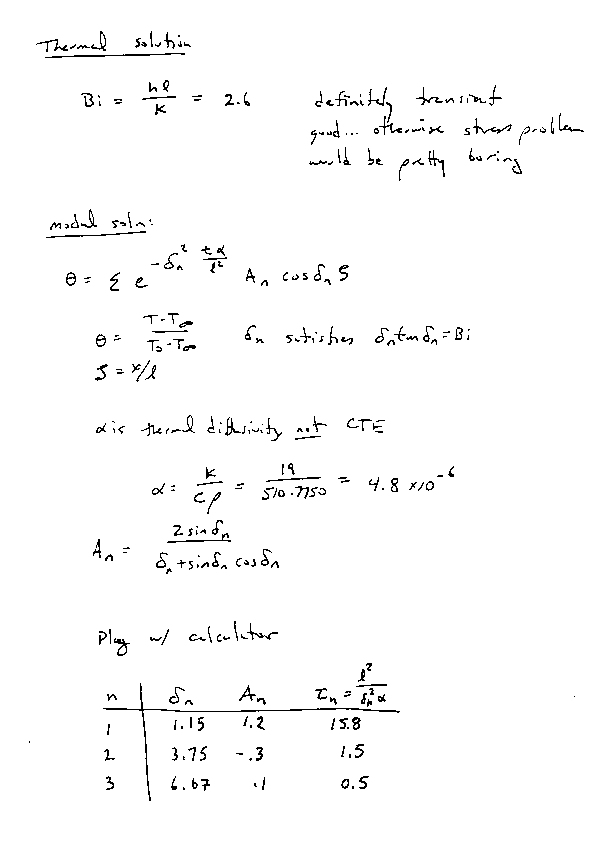 Thermal solution
Bi = hl/k = 2.6 definitely transient
good... otherwise stress problem
would be pretty boring
modal soln:
θ = Σ e^(-δn² tα/l²) An cos δn ζ
θ = (T-T∞)/(To-T∞) δn satisfies δn tan δn = Bi
ζ = x/l
α is thermal diffusivity not CTE
α = k/cρ = 19/510·7750 = 4.8 x10^-6
An = 2 sin δn/(δn + sin δn cos δn)
Play w/ calculator
n δn An τn = l²/(δn² α)
1 1.15 1.2 15.8
2 3.75 -.3 1.5
3 6.67 .1 0.5